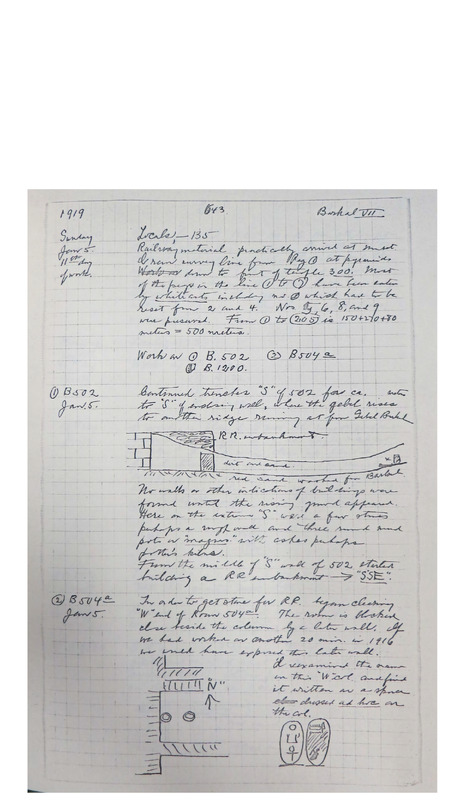 1919 643 Barkal VII
Sunday
Jan. 5
11th day
of work.
Locals — 135
Railway material practically arrived at sunset
Ran survey line from Peg ① at pyramids
down to front of temple 300. Most
of the pegs in the line ① to have been eaten
by white ants including no which had to be
reset from 2 and 4. Nos 5, 6, 8, and 9
were From ① to is 150+270+80
meters = 500 meters.
Work on ① B. 502 ② B 504a
③ B. 1200.
① B 502
Jan. 5.
Continued trenches "S" of 502 for ca. meters
to "S" of enclosing wall, where the gebel rises
to another ridge running out from Gebel Barkal
R.R. embankment
dirt and sand
red sand washed from Barkal
No walls or other indications of buildings were
found until the rising ground appeared.
Here on the extreme "S" was a few stones
perhaps a rough wall and three round mud
pots or "magurs" with ashes perhaps
potter's kilns.
From the middle of "S" wall of 502 started
building a RR embankment → "SSE".
② B 504a
Jan. 5.
In order to get stone for R.R. began clearing
"W" end of Room 504a. The room is blocked
close beside the column by a later wall. If
we had worked on another 20 min. in 1916
we would have exposed this later wall.
I reexamined the name
in this "W" col. and find
it written in a space
dressed ad hoc on
the col.
"N"